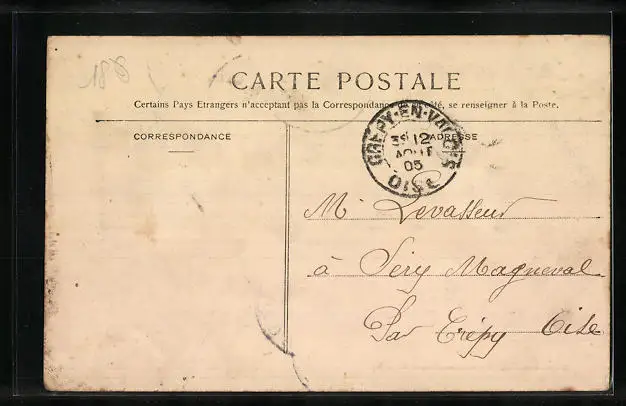 CARTE POSTALE
Certains Pays Etrangers n'acceptant pas la Correspondance se renseigner à la Poste.
CORRESPONDANCE
ADRESSE
CRÉPY-EN-VALOIS
12
AOUT
05
OISE
Mr Levasseur
à Séry Magneval
Par Crépy Oise